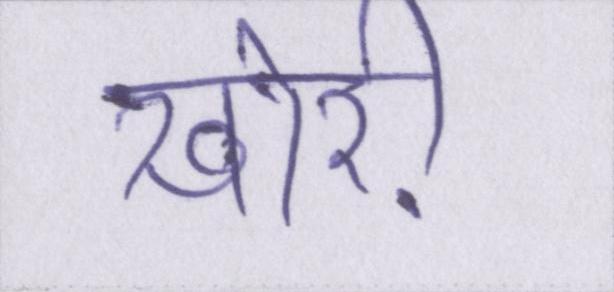 खोरी़